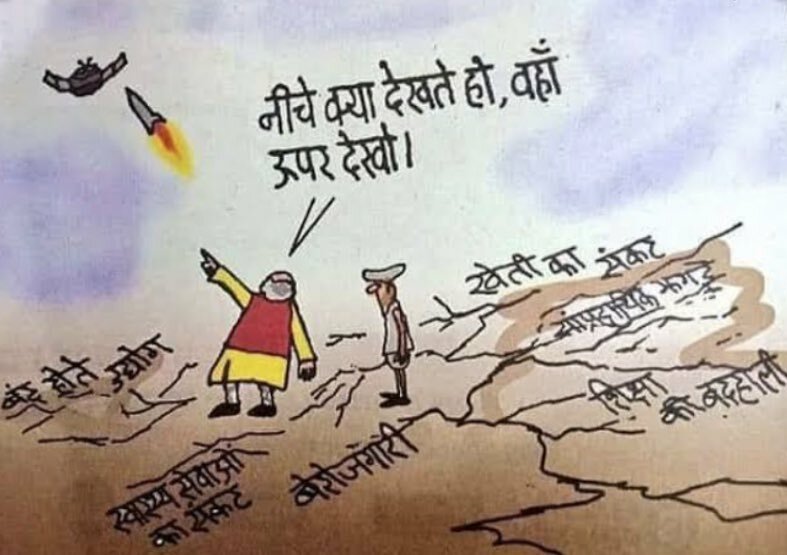 नीचे क्या देखते हो, वहाँ
ऊपर देखो।
खेती का संकट
सांप्रदायिक झगड़े
बंद होते उद्योग
शिक्षा
की बदहाली
स्वास्थ्य सेवाओं
का संकट
बेरोजगारी